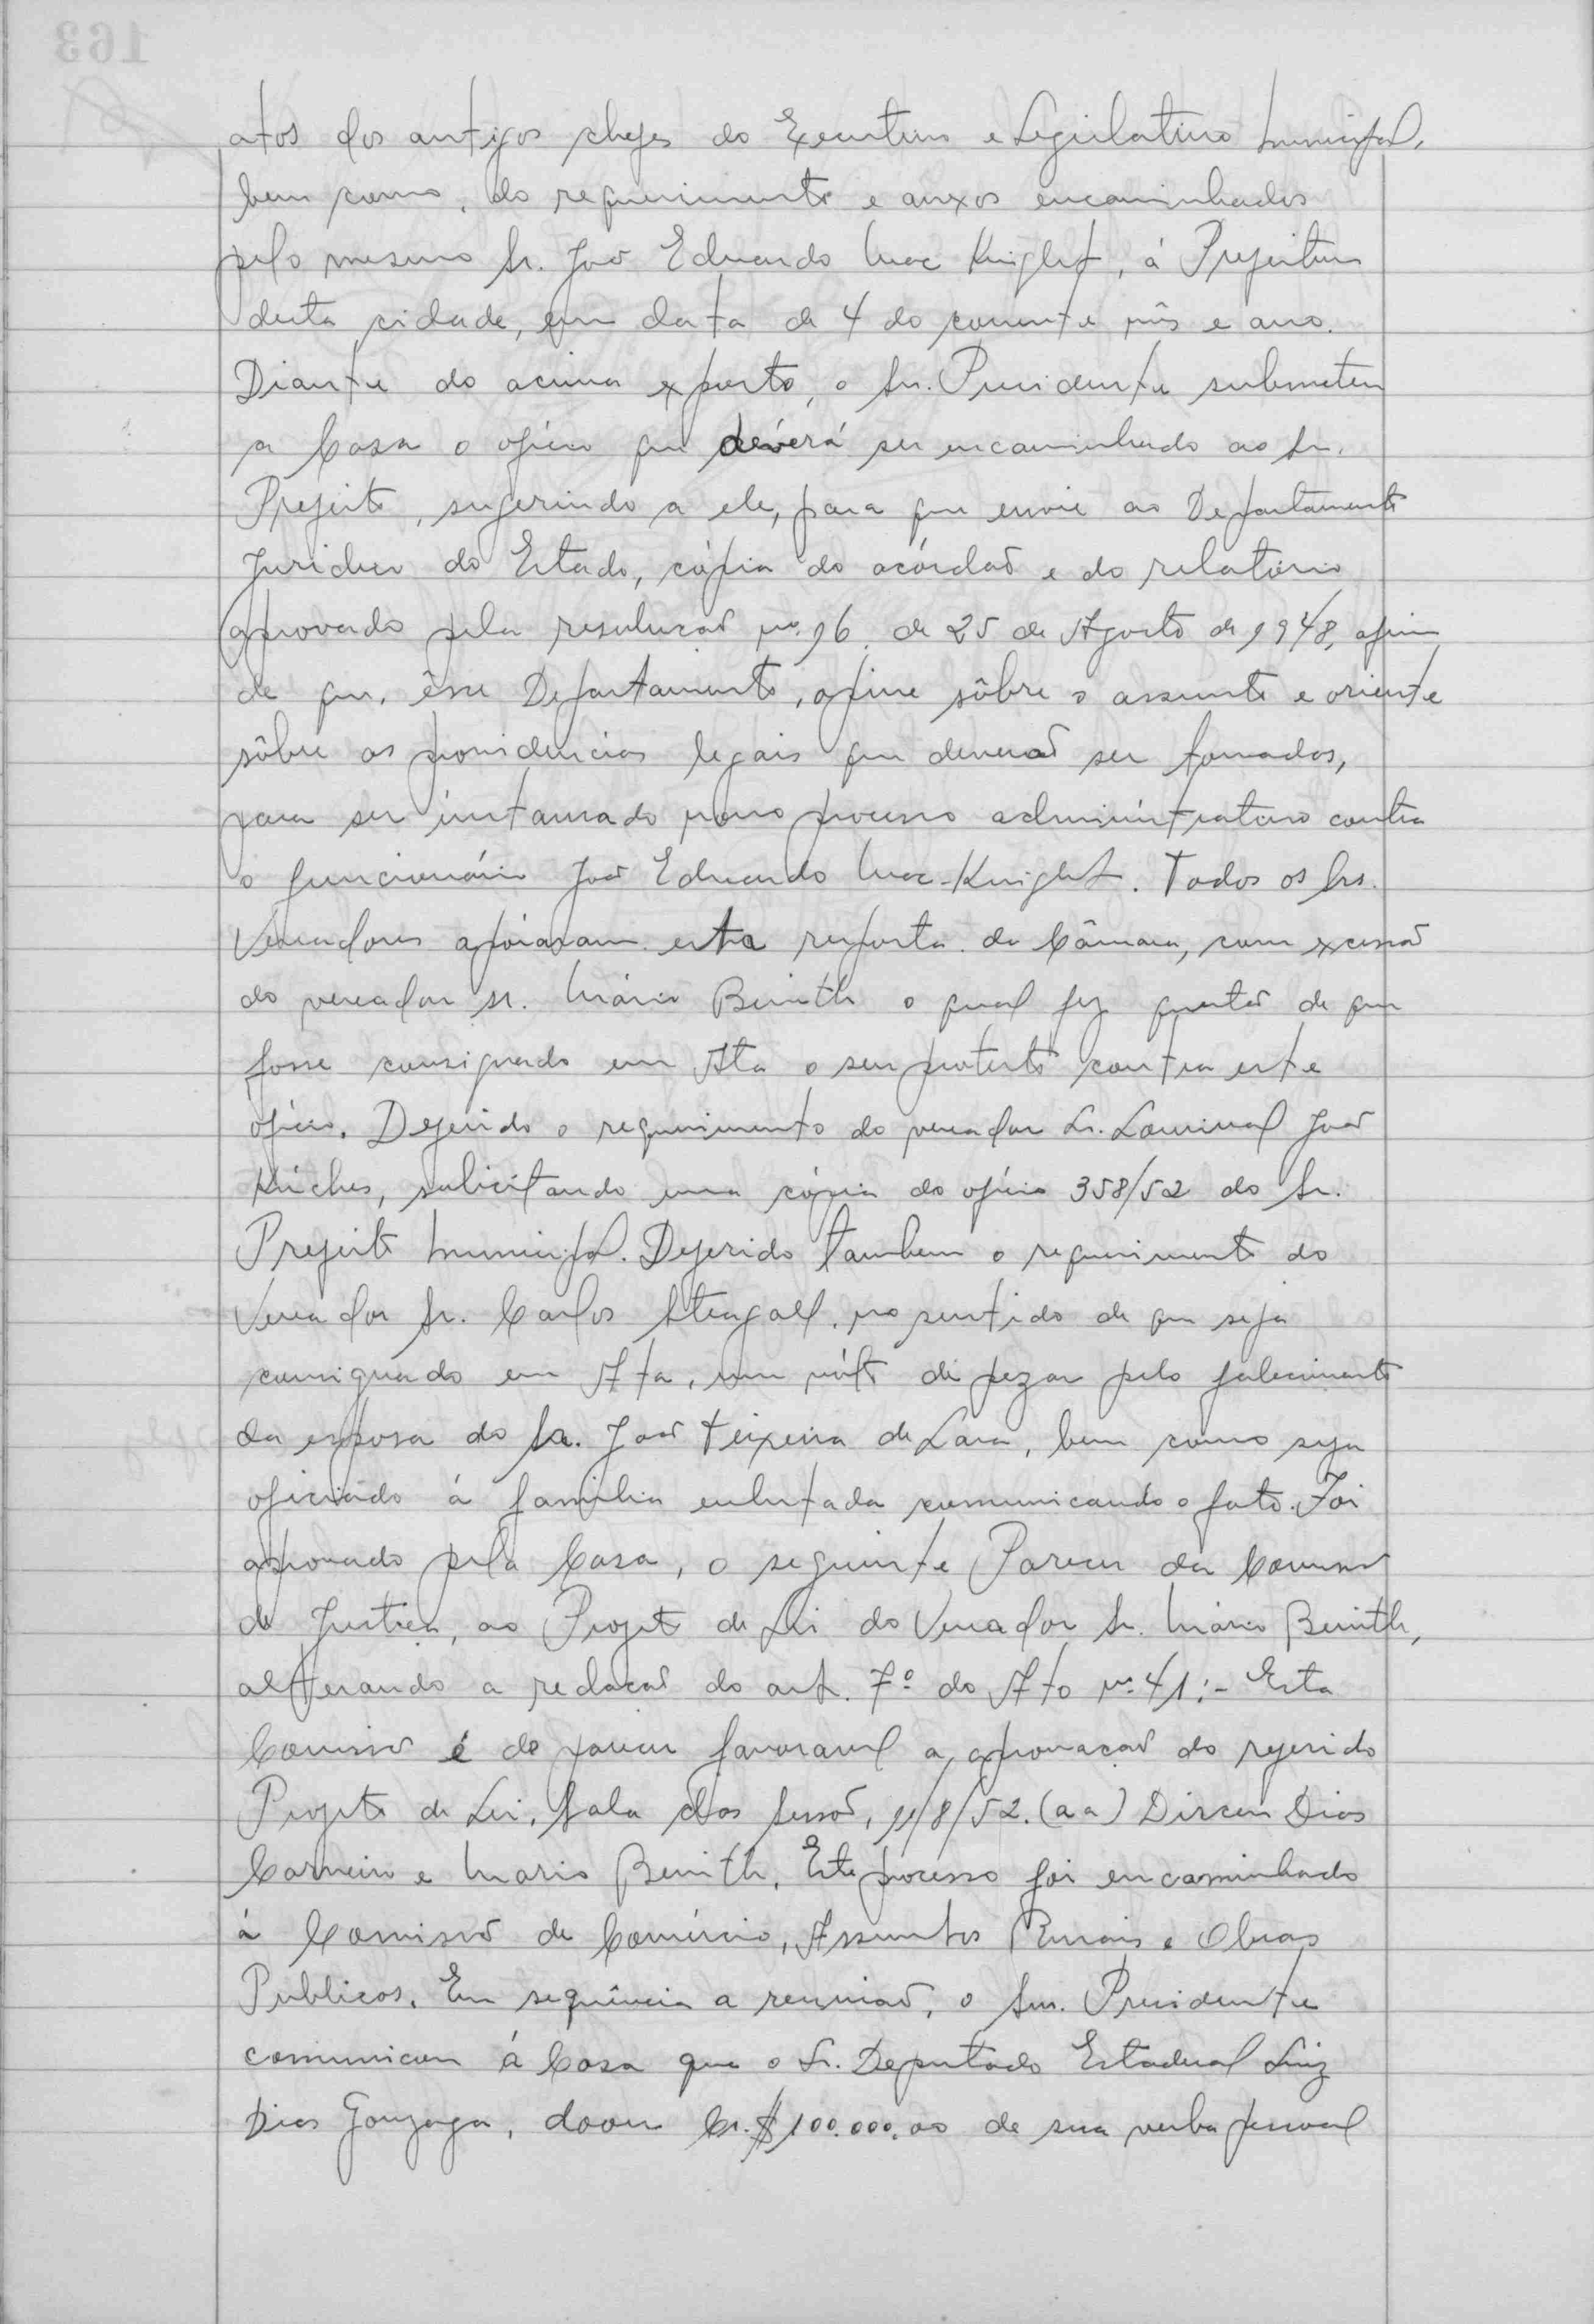 atos dos antigos chefes do Executivo e Legislativo Municipal,
bem como, do requerimento e anexos encaminhados
pelo mesmo Sr. João Eduardo Mac Knight, á Prefeitura
desta cidade, em data de 4 do corrente mês e ano.
Diante do acima exposto, o Snr. Presidente submeteu
a Casa o ofício que deverá ser encaminhado ao Sr.
Prefeito, sugerindo a ele, para que envie ao Departamento
Juridico do Estado, cópia do acórdão e do relatório
aprovado pela resolução nº. 16, de 25 de Agosto de 1948, afim
de que, êsse Departamento, opine sôbre o assunto e oriente
sôbre as providencias legais que deverão ser tomadas,
para ser instaurado novo processo administrativo contra
o funcionário João Eduardo Mac-Knight. Todos os Srs.
Vereadores apoiaram esta resposta da Câmara, com excessão
do vereador sr. Mário Benith o qual fez questão de que
fosse consignado em Ata o seu protesto contra este
ofício. Deferido o requerimento do vereador Sr. Lourival João
solicitando uma cópia do ofício 358/52 do Sr.
Prefeito Municipal. Deferido tambem o requerimento do
Vereador Sr. Carlos Stengall, no sentido de que seja
consignado em Ata, um vóto de pezar pelo falecimento
da esposa do Sr. João Teixeira de Lara, bem como seja
oficiado á familia enlutada comunicando o fato. Foi
aprovado pela Casa, o seguinte Parecer da Comissão
de Justiça, ao Projeto de Lei do Vereador Sr. Mário Benith,
alterando a redação do art. 7º do Ato nº. 41:- Esta
Comissão é de parecer favoravel a aprovação do referido
Projeto de Lei. Sala das Sessões, 11/8/52. (aa) Dirceu Dias
Carneiro e Mario Benith. Este processo foi encaminhado
á Comissão de Comércio, Assuntos Rurais e Obras
Publicas. Em sequência a reunião, o Snr. Presidente
comunicou á Casa que o Sr. Deputado Estadual Luiz
Dias Gonzaga, doou Cr.$ 100.000,00 de sua verba pessoal